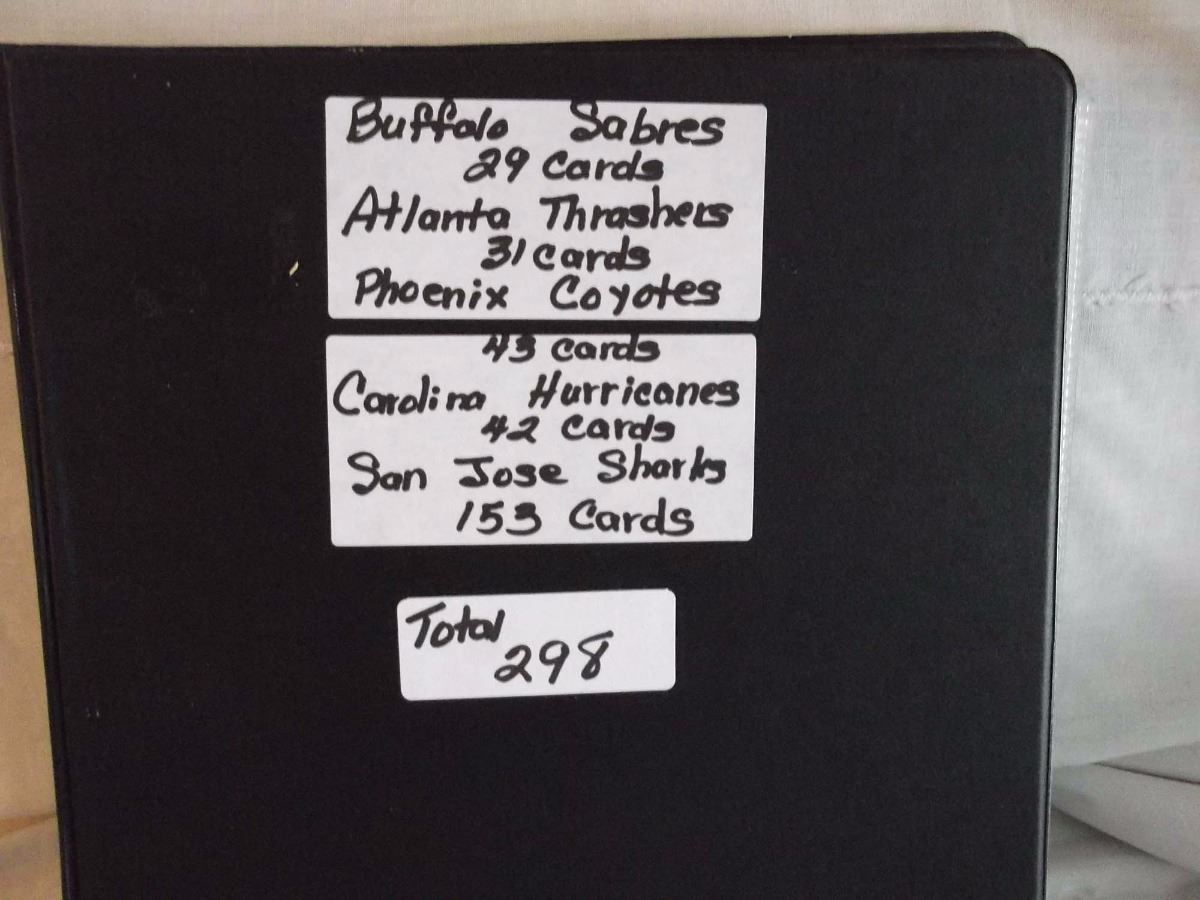 Buffalo Sabres
29 Cards
Atlanta Thrashers
31 Cards
Phoenix Coyotes
43 Cards
Carolina Hurricanes
42 Cards
San Jose Sharks
153 Cards
Total
298